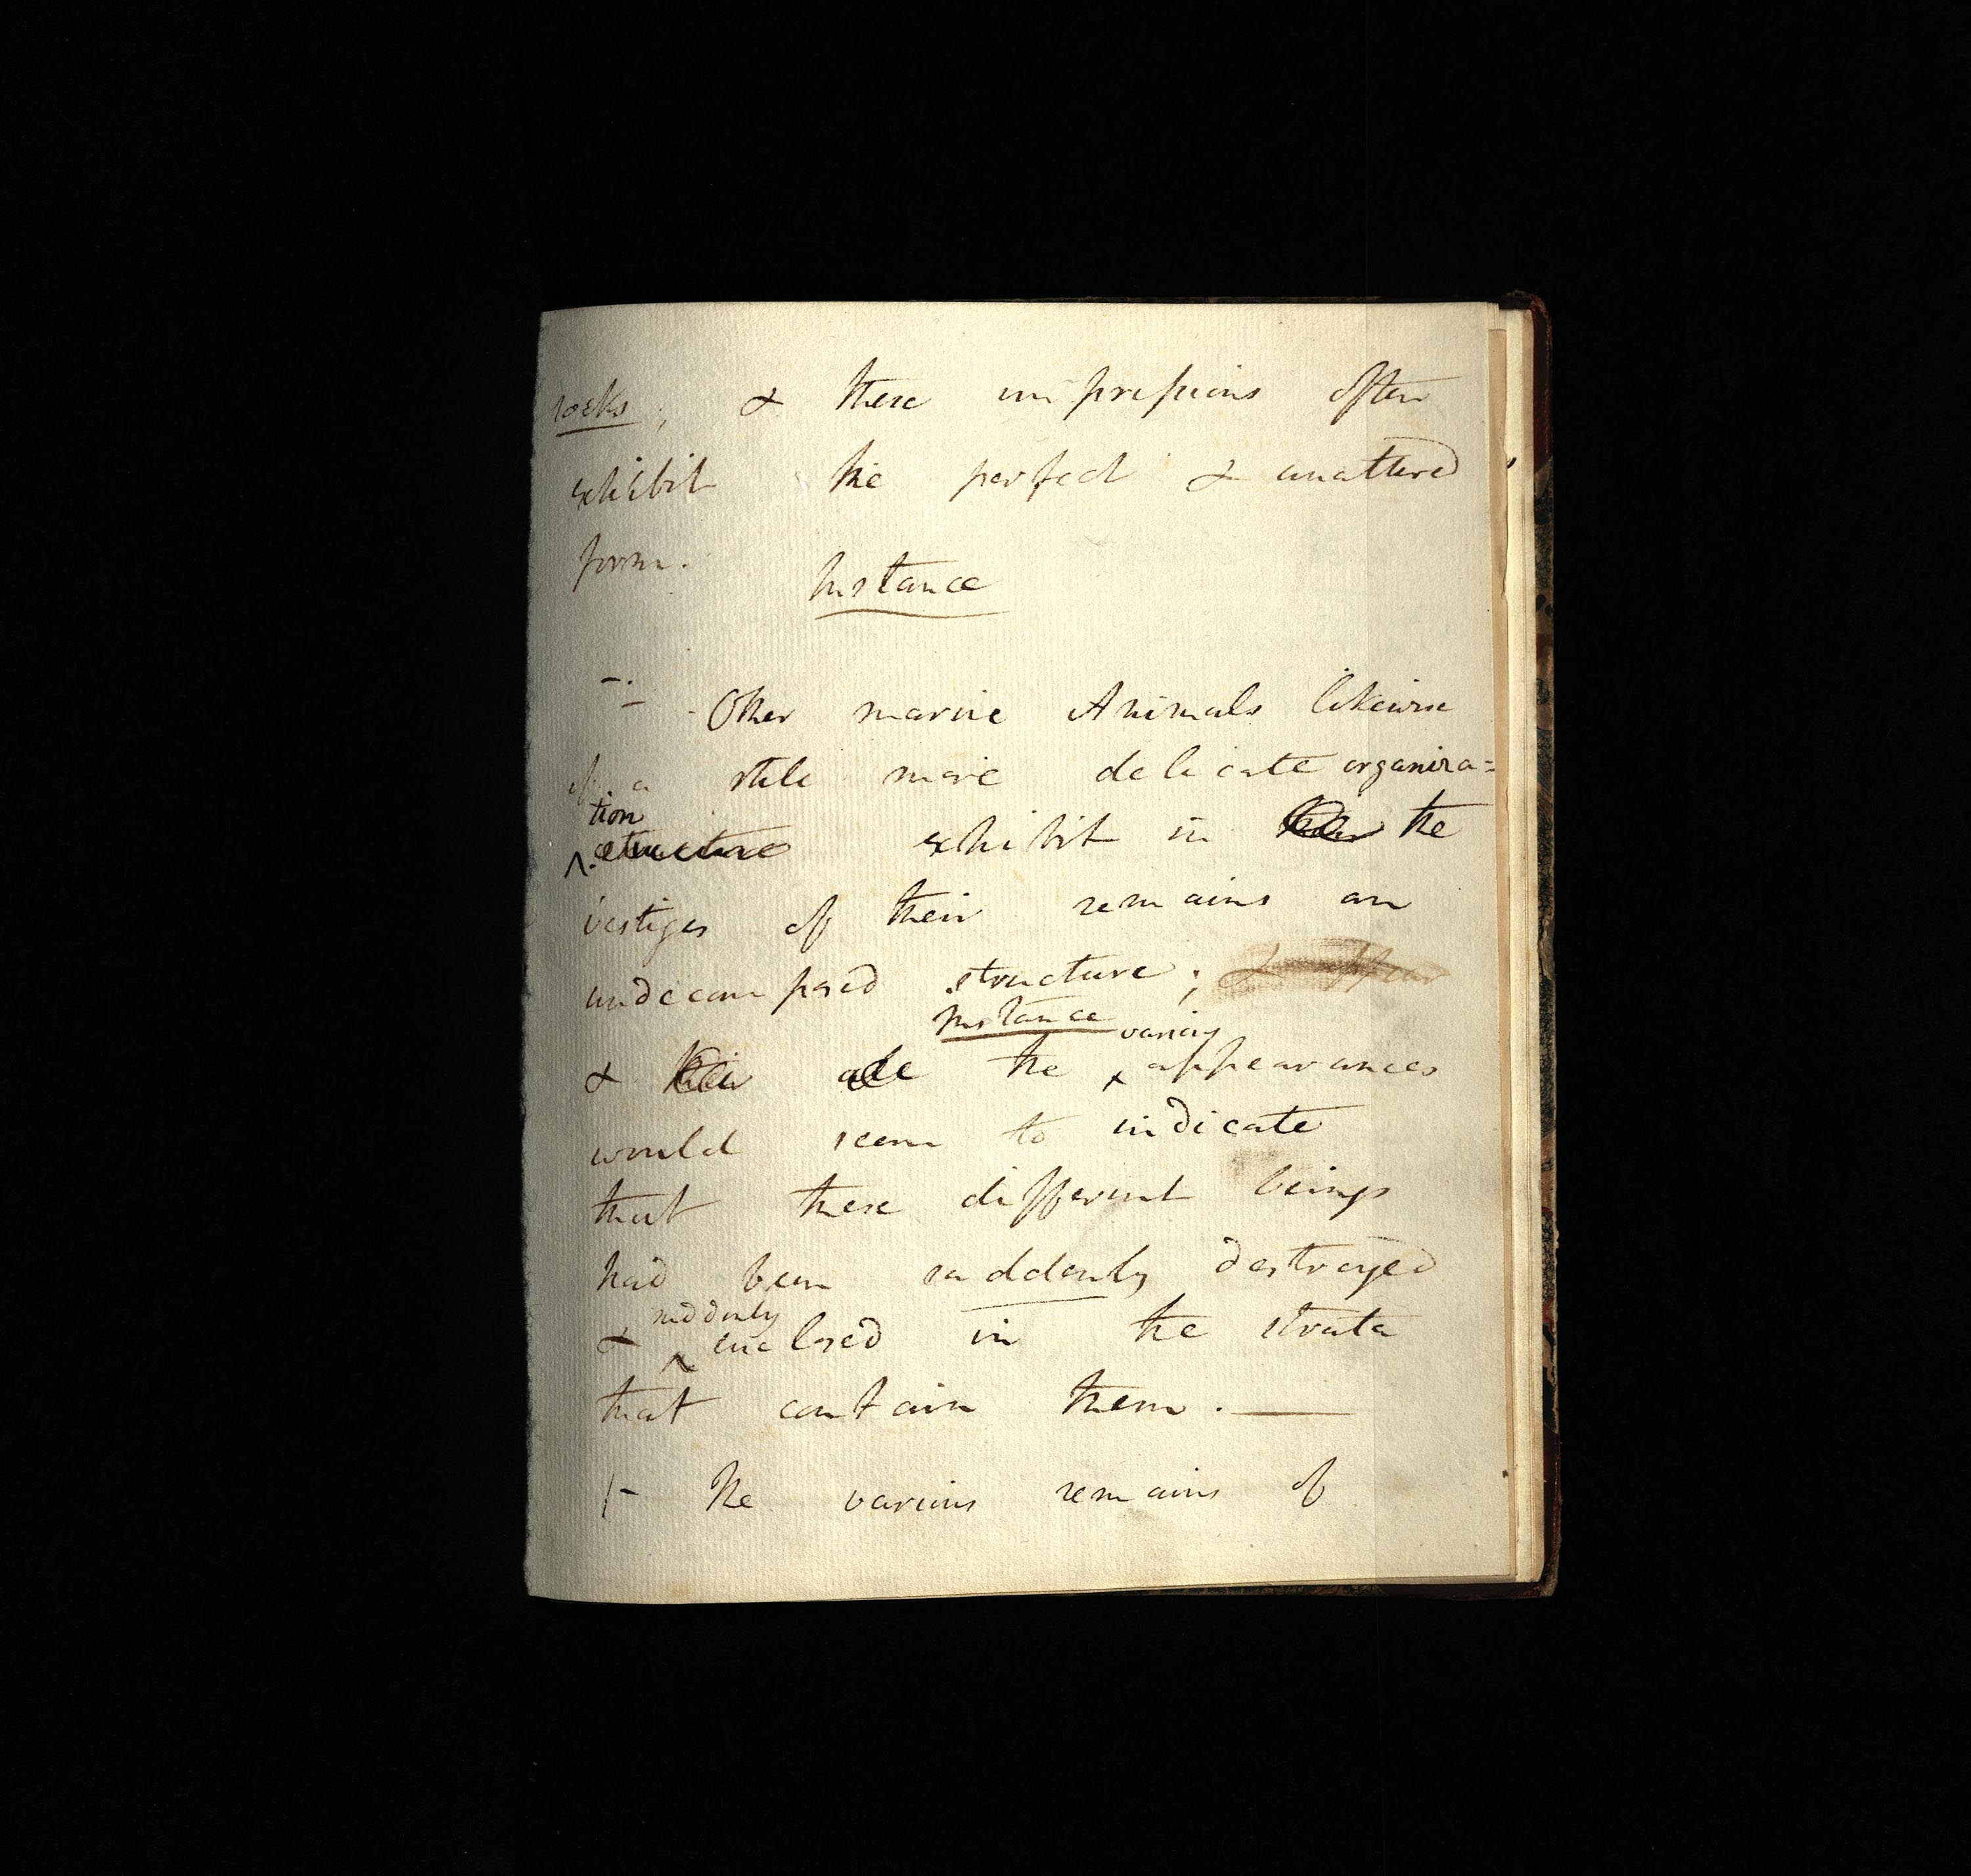 rocks; & these impressions often
exhibit the perfect & unaltered
form.
Instance
- Other marine Animals likewise
of a still more delicate organiza=
tion
structure exhibit in the
vestiges of their remains an
undecomposed structure; & appear
Instance various
& all the appearances
would seem to indicate
that these different beings
had been suddenly destroyed
suddenly
& enclosed in the strata
that contain them.—
- The various remains of